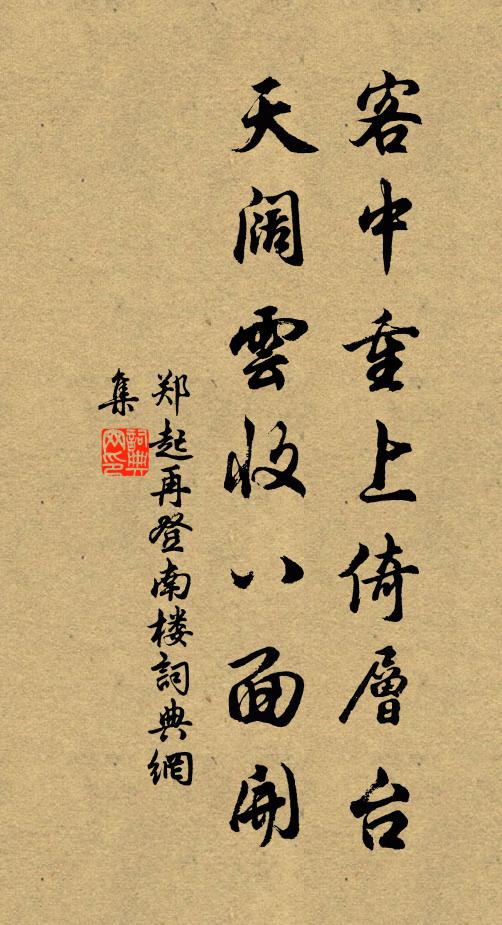 客中重上倚層台
天阔雲收八面開
郑起再登南楼詞典網
集
詞典网印